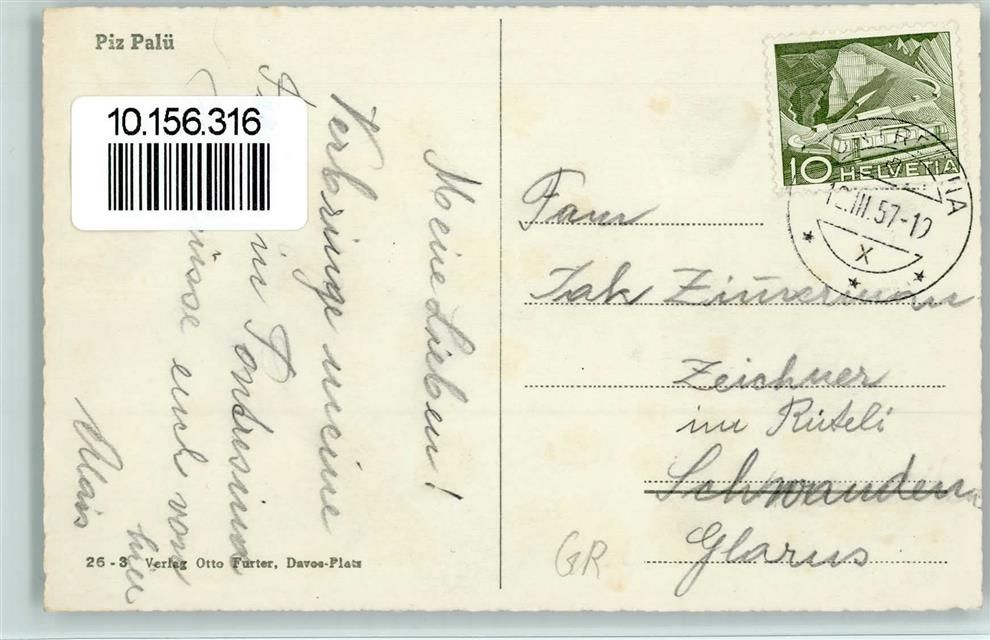 Piz Palü
10.156.316
Meine Lieben!
Verbringe meine
in Pontresina
euch von
hier
26 - 3 Verlag Otto Furter, Davos-Platz
10 HELVETIA
III.57-10
X
Fam
Jak Zimmermann
Zeichner
im Rüteli
Schwanden
Glarus
GR